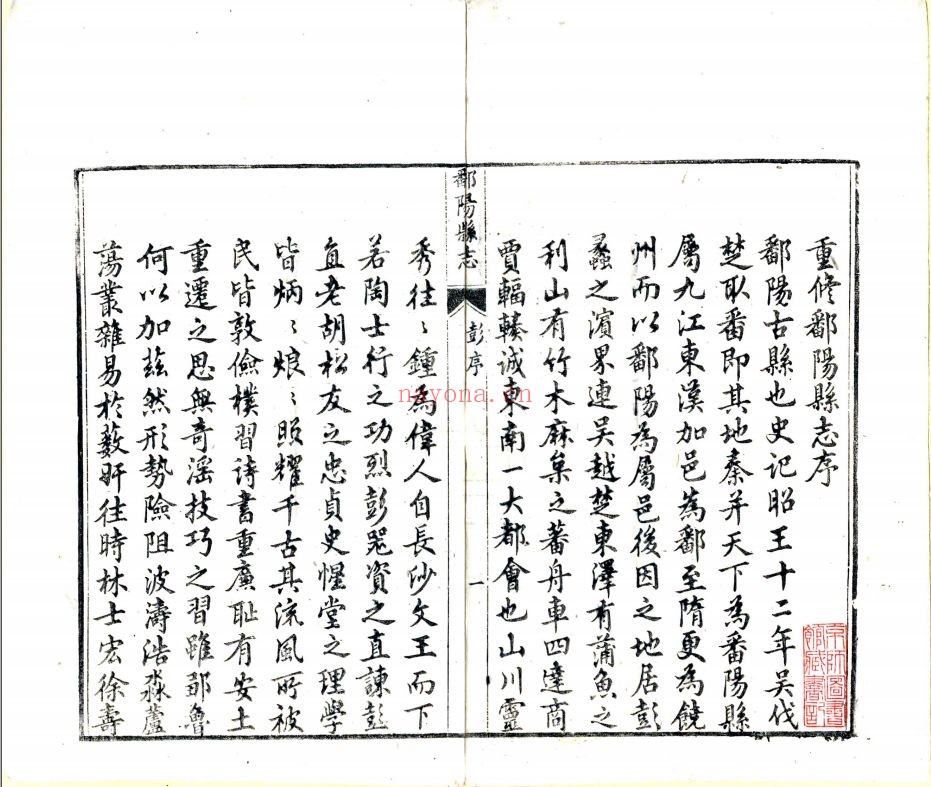 重修鄱陽縣志序
鄱陽古縣也史记昭王十二年吴伐
楚取番即其地秦并天下為番陽縣
屬九江東漢加邑為鄱至隋更為饒
州而以鄱陽為屬邑後因之地居彭
蠡之濱界連吴越楚東澤有蒲魚之
利山有竹木麻枲之蕃舟車四達商
賈輻輳诚東南一大都會也山川靈
鄱陽縣志
彭序
一
秀往〻鍾為偉人自長沙文王而下
若陶士行之功烈彭器資之直諫彭
直老胡松友之忠貞史惺堂之理學
皆炳〻烺〻照耀千古其流風所被
民皆敦儉樸習诗書重廉耻有安土
重遷之思無奇淫技巧之習雖鄒魯
何以加茲然形勢險阻波濤浩淼蘆
蕩叢雜易於藪奸往時林士宏徐壽
nayona.cn